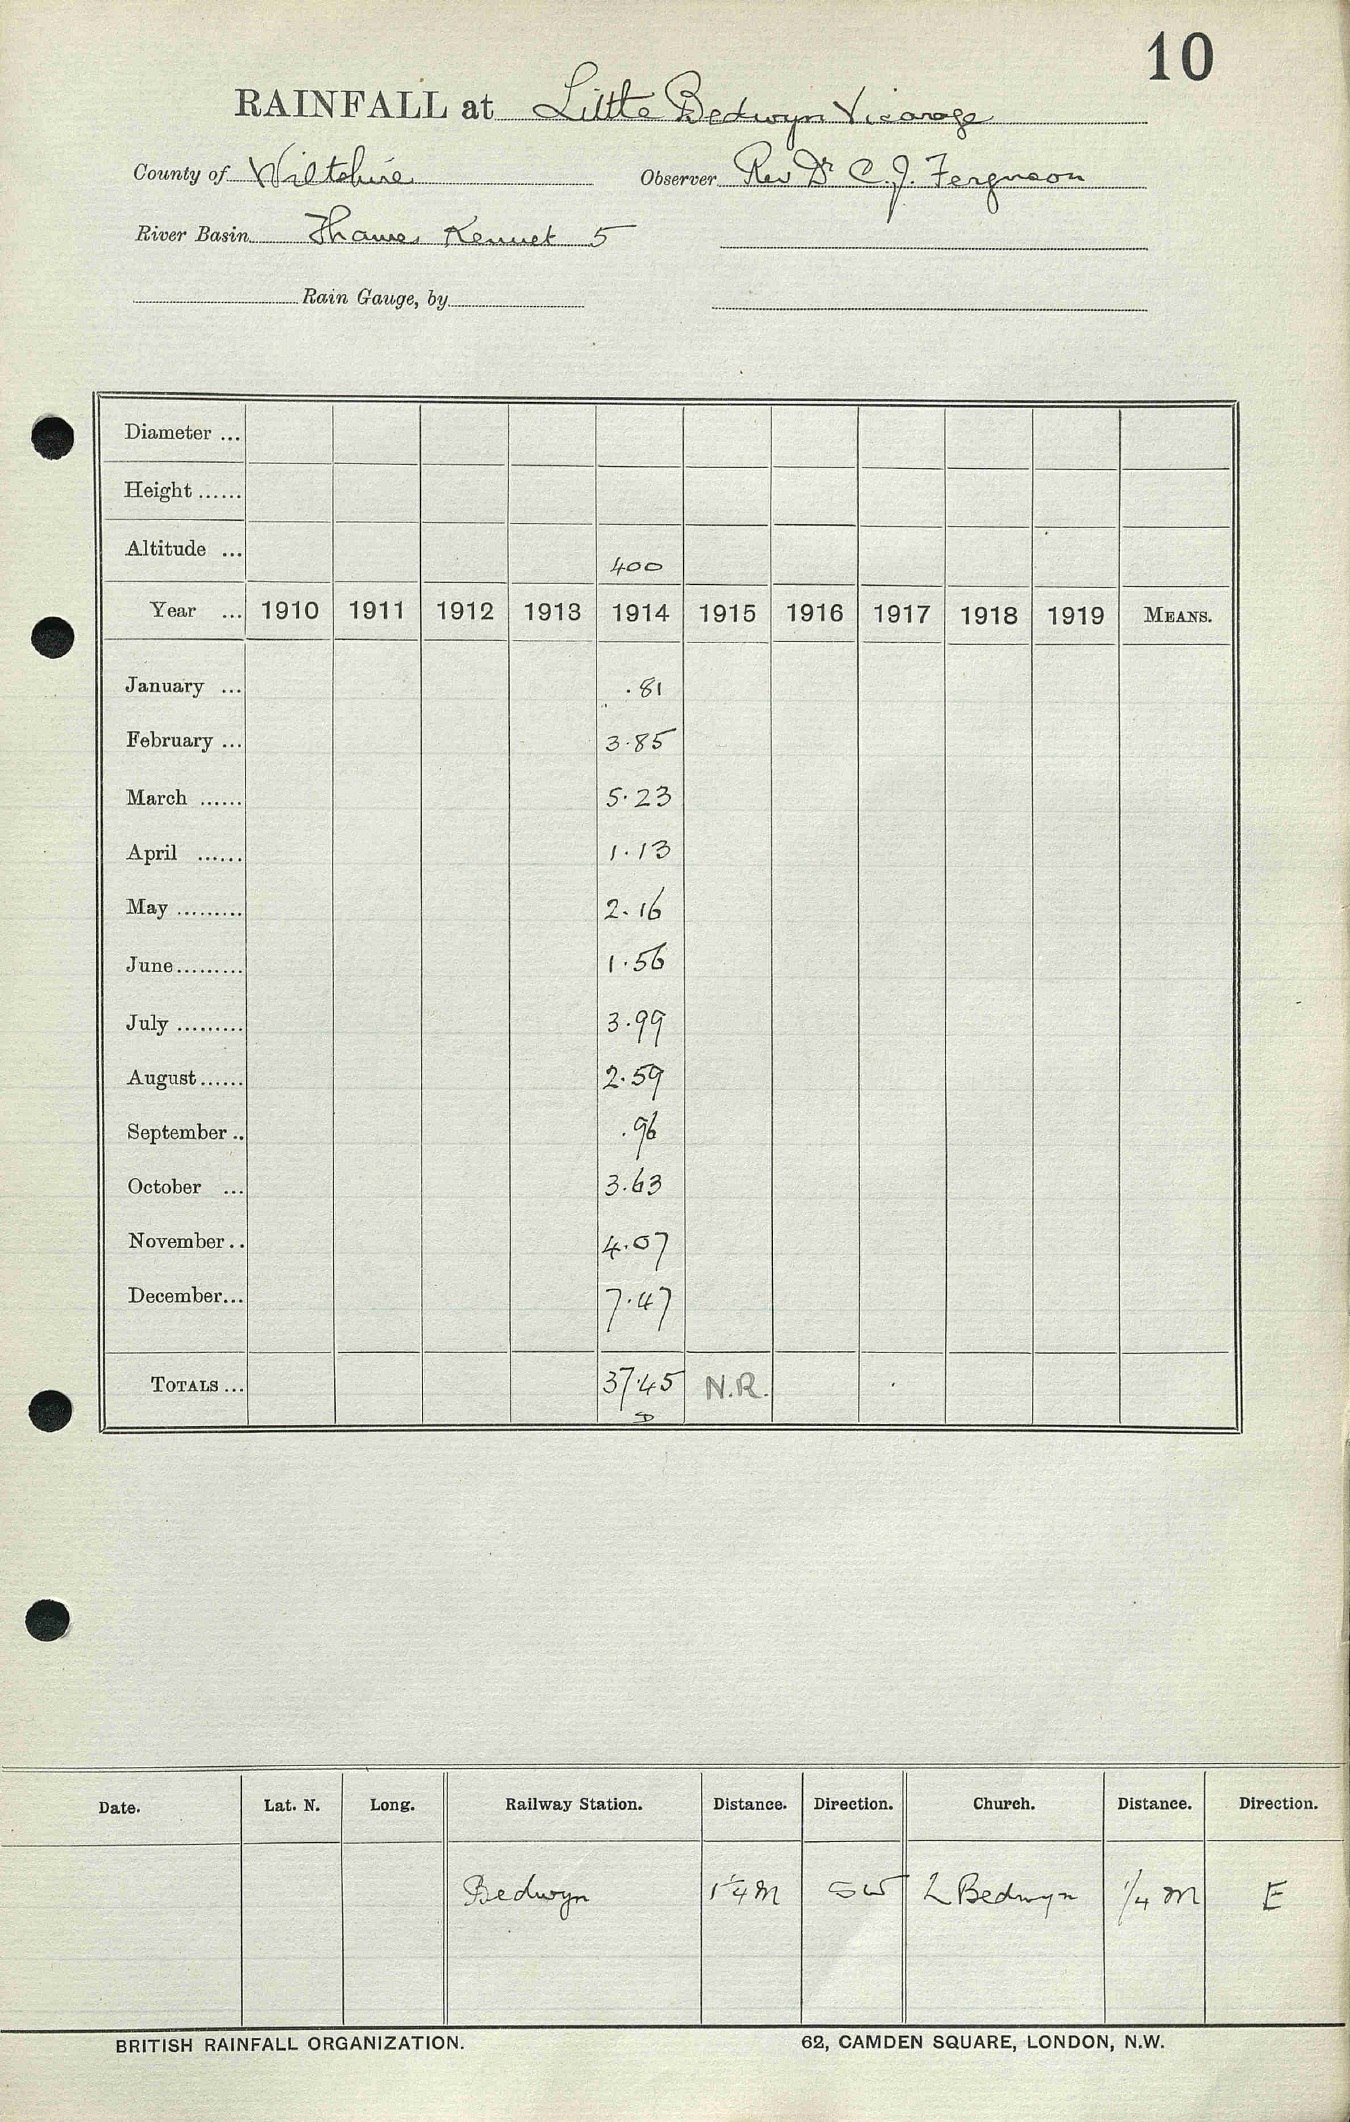 10
RAINFALL at Little Bedwyn Vicarage
County of Wiltshire Observer Rev Dr C. J. Ferguson
River Basin Thames Kennet 5
Rain Gauge, by
Diameter ...
Height ......
Altitude ... 400
Year ... 1910 1911 1912 1913 1914 1915 1916 1917 1918 1919 MEANS.
January ... .81
February ... 3.85
March ...... 5.23
April ...... 1.13
May ......... 2.16
June......... 1.56
July ......... 3.99
August...... 2.59
September .. .96
October ... 3.63
November .. 4.07
December... 7.47
TOTALS ... 37.45 N.R.
D
Date. Lat. N. Long. Railway Station. Distance. Direction. Church. Distance. Direction.
Bedwyn 1 1/4 M SW L Bedwyn 1/4 M E
BRITISH RAINFALL ORGANIZATION. 62, CAMDEN SQUARE, LONDON, N.W.